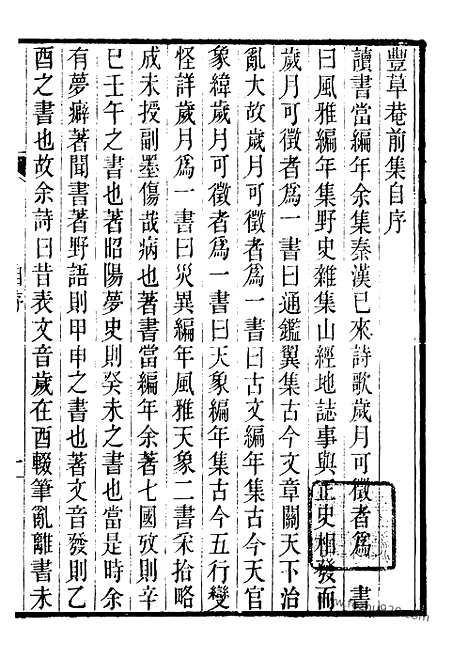 豐草菴前集自序
讀書當編年余集秦漢已來詩歌歲月可徵者爲一書
曰風雅編年集野史雜集山經地誌事與正史相發而
歲月可徵者爲一書曰通鑑翼集古今文章關天下治
亂大故歲月可徵者爲一書曰古文編年集古今天官
象緯歲月可徵者爲一書曰天象編年集古今五行變
怪詳歲月爲一書曰災異編年風雅天象二書米拾略
成未授副墨傷哉病也著書當編年余著七國攷則辛
巳壬午之書也著昭陽夢史則癸未之書也當是時余
有夢癖著聞書著野語則甲申之書也著文音發則乙
酉之書也故余詩曰昔表文音歲在酉輟筆亂離書未
自序
一